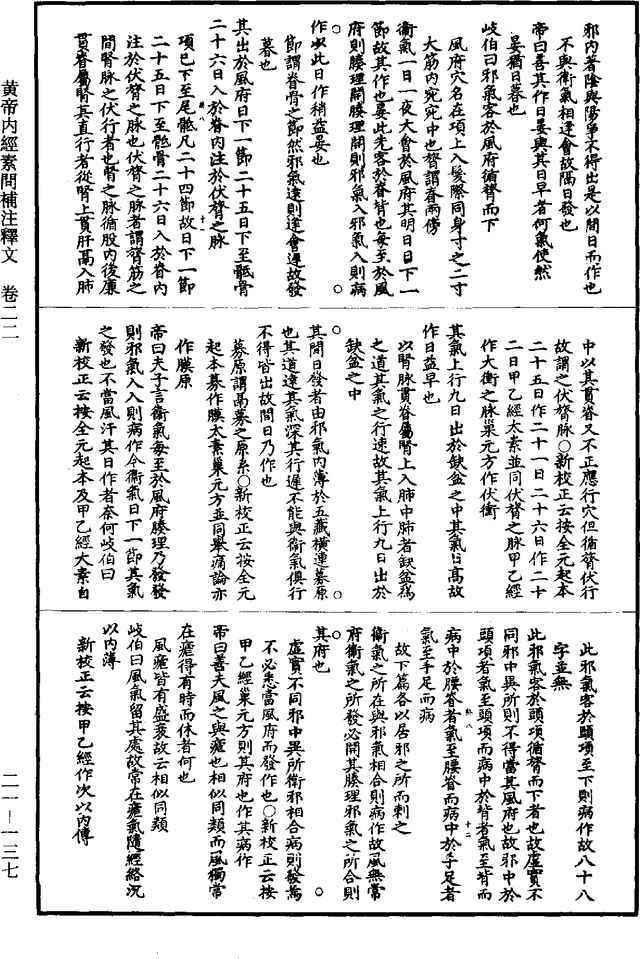 邪內著陰與陽爭不得出是以間日而作也
不與衛氣相逢會故隔日發也
帝曰善其作日晏與其日早者何氣使然
晏猶日暮也
岐伯曰邪氣客於風府循膂而下
風府穴名在項上入髮際同身寸之二寸
大筋內宛宛中也膂謂脊兩傍
衛氣一日一夜大會於風府其明日日下一
節故其作也晏此先客於脊背也每至於風
府則腠理開腠理開則邪氣入邪氣入則病
作以此日作稍益晏也
節謂脊骨之節然邪氣遠則逢會遲故發
暮也
其出於風府日下一節二十五日下至骶骨
二十六日入於脊內注於伏膂之脉
項已下至尾骶凡二十四節故日下一節
二十五日下至骶骨二十六日入於脊內
注於伏膂之脉也伏膂之脉者謂膂筋之
間腎脉之伏行者也腎之脉循股內後廉
貫脊屬腎其直行者從腎上貫肝鬲入肺
中以其貫脊又不正應行穴但循膂伏行
故謂之伏膂脉○新校正云按全元起本
二十五日作二十一日二十六日作二十
二日甲乙經太素並同伏膂之脉甲乙經
作大衝之脉巢元方作伏衝
其氣上行九日出於缺盆之中其氣日高故
作日益早也
以腎脉貫脊屬腎上入肺中肺者缺盆爲
之道其氣之行速故其氣上行九日出於
缺盆之中
其間日發者由邪氣內薄於五藏橫連募原
也其道遠其氣深其行遲不能與衛氣俱行
不得皆出故間日乃作也
募原謂鬲募之原系○新校正云按全元
起本募作膜太素巢元方並同舉痛論亦
作膜原
帝曰夫子言衛氣每至於風府腠理乃發發
則邪氣入入則病作今衛氣日下一節其氣
之發也不當風府其日作者奈何岐伯曰
新校正云按全元起本及甲乙經太素自
此邪氣客於頭項至下則病作故八十八
字並無
此邪氣客於頭項循膂而下者也故虛實不
同邪中異所則不得當其風府也故邪中於
頭項者氣至頭項而病中於背者氣至背而
病中於腰脊者氣至腰脊而病中於手足者
氣至手足而病
故下篇各以居邪之所而刺之
衛氣之所在與邪氣相合則病作故風無常
府衛氣之所發必開其腠理邪氣之所合則
其府也
虛實不同邪中異所衛邪相合病則發焉
不必悉當風府而發作也○新校正云按
甲乙經巢元方則其府也作其病作
帝曰善夫風之與瘧也相似同類而風獨常
在瘧得有時而休者何也
風瘧皆有盛衰故云相似同類
岐伯曰風氣留其處故常在瘧氣隨經絡沉
以內薄
新校正云按甲乙經作次以內傳
黃帝內經素問補注釋文 卷二二
二一—一三七